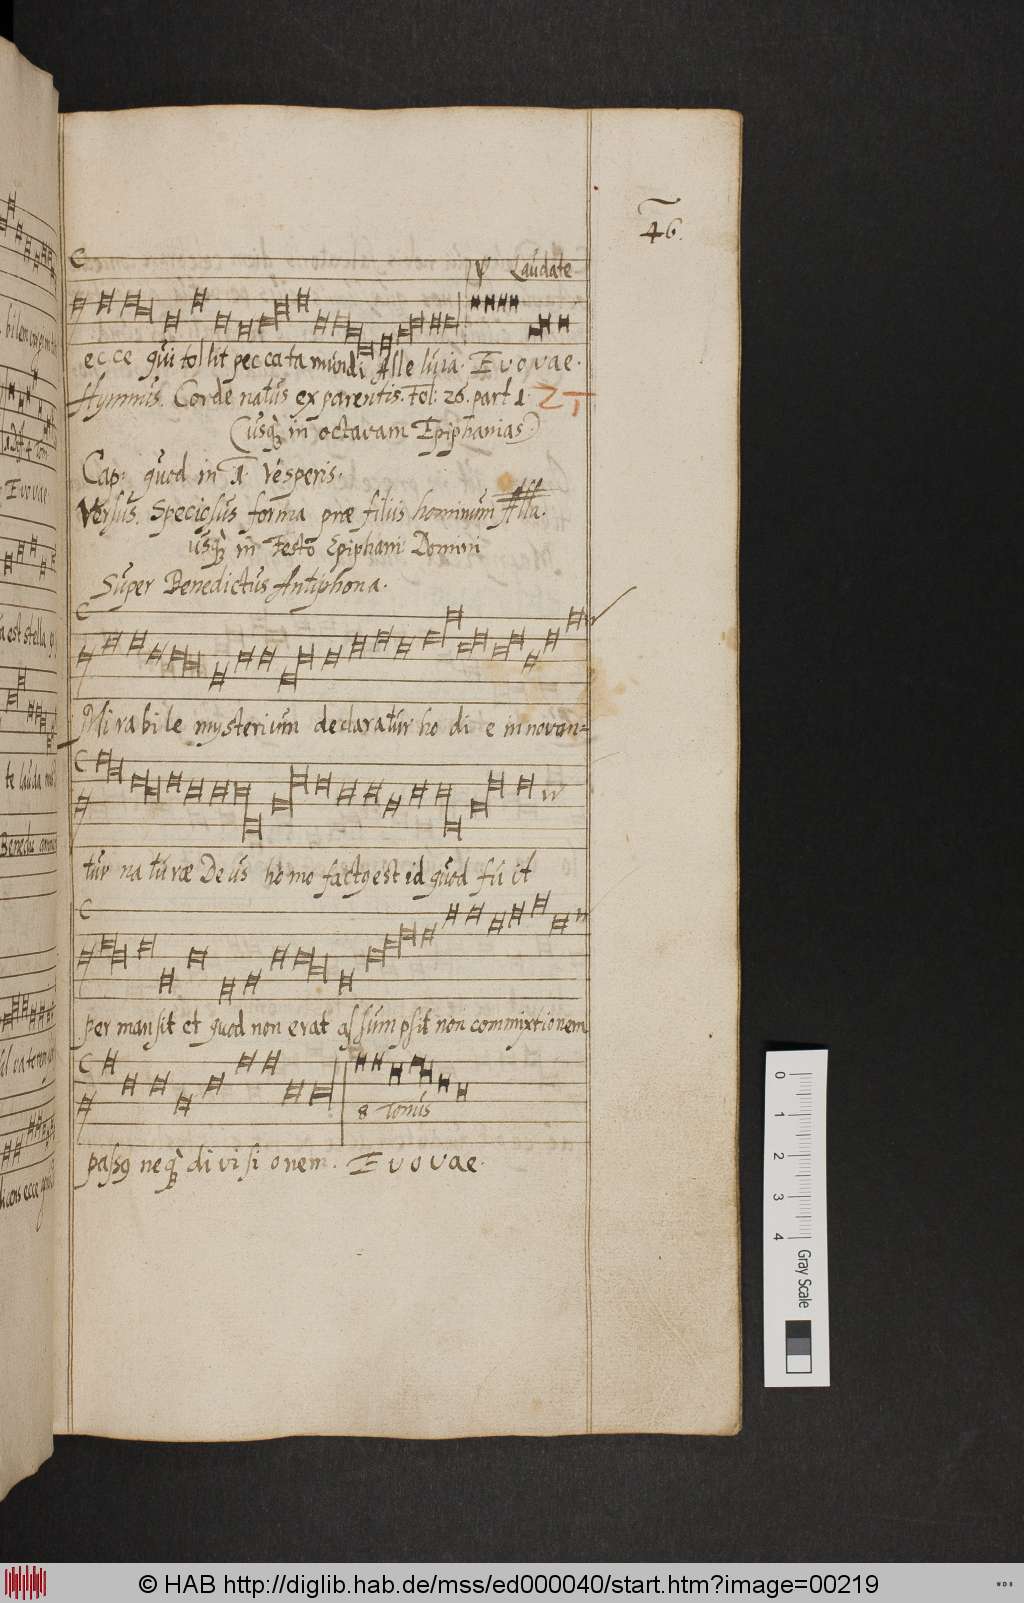 46.
Laudate
ecce qui tollit peccata mundi Alle luia. Evovae.
Hymnus. Corde natus ex parentis. Fol: 26. part 1. ZT
(usq; in octavam Epiphanias.)
Cap: quod in 1. Vesperis.
Versus. Speciosus forma præ filiis hominum Alla.
usq; in Festo Epiphani Domini
Super Benedictus Antiphona.
Mi ra bi le mysterium declaratur ho di e in novan=
tur na tu ræ De us ho mo factq est id quod fu it
per mansit et quod non erat assumpsit non commixtionem
8 Tonus
passq neq; di vi si onem. Evovae.
Evovae
a est stella
te lauda
dicens ecce
0 1 2 3 4 Gray Scale
© HAB http://diglib.hab.de/mss/ed000040/start.htm?image=00219